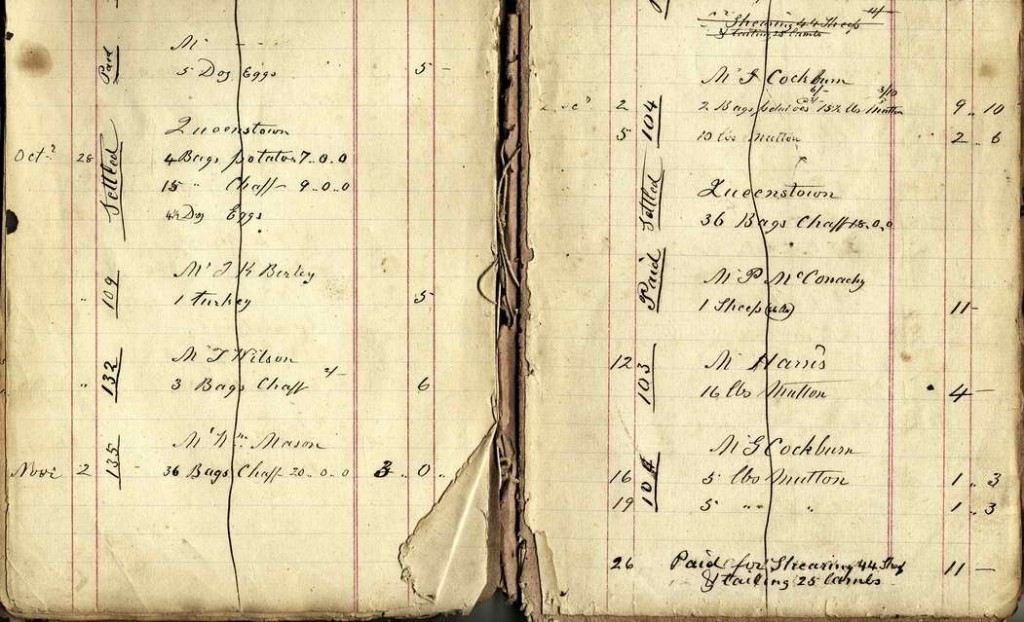 Paid
Mr
5 Doz Eggs 5 -
Queenstown
Oct. 28 Settled 4 Bags potatos 7..0.0
15 " Chaff - 9..0..0
Doz Eggs
109 Mr J K Berley
" 1 turkey 5
Mr J Wilson
" 132 3 Bags Chaff 2/- 6
Mr Wm Mason
Novr 2 135 36 Bags Chaff 20..0..0 3..0..
4/-
Shearing 44 Sheep
& tailing 25 lambs
Mr J Cockburn
6/- 3/10
2 104 2 Bags 15½ lbs Mutton 9..10
5 10 lbs mutton 2..6
Settled Queenstown
36 Bags Chaff 18.0.0
Paid Mr P McConachy
1 Sheep 11-
12 103 Mr Harris
16 lbs Mutton 4-
Mr G Cockburn
16 104 5 lbs Mutton 1..3
19 5 " " " 1..3
26 Paid for Shearing 44 Sheep 11-
& tailing 25 lambs